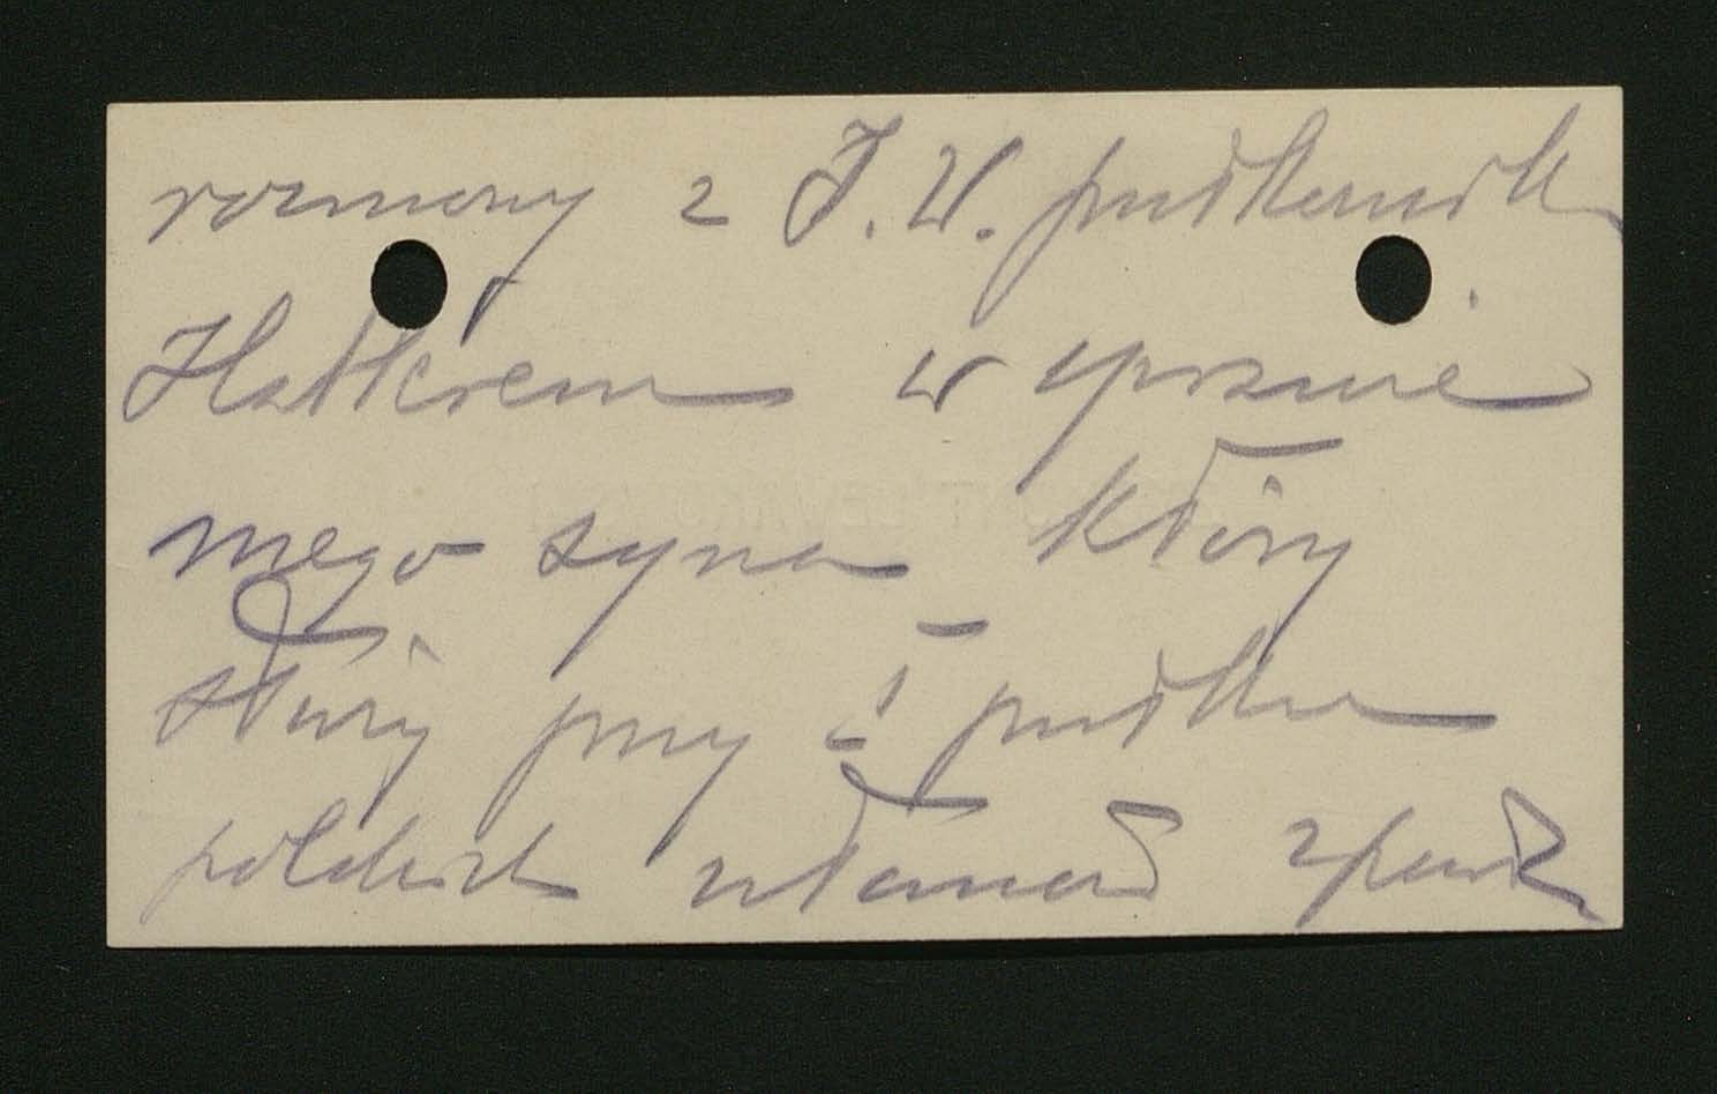 rozmowy z J. W. pułkownik
Hallerem w sprawie
mego syna który
służy przy 2 pułku
polskich ułanów